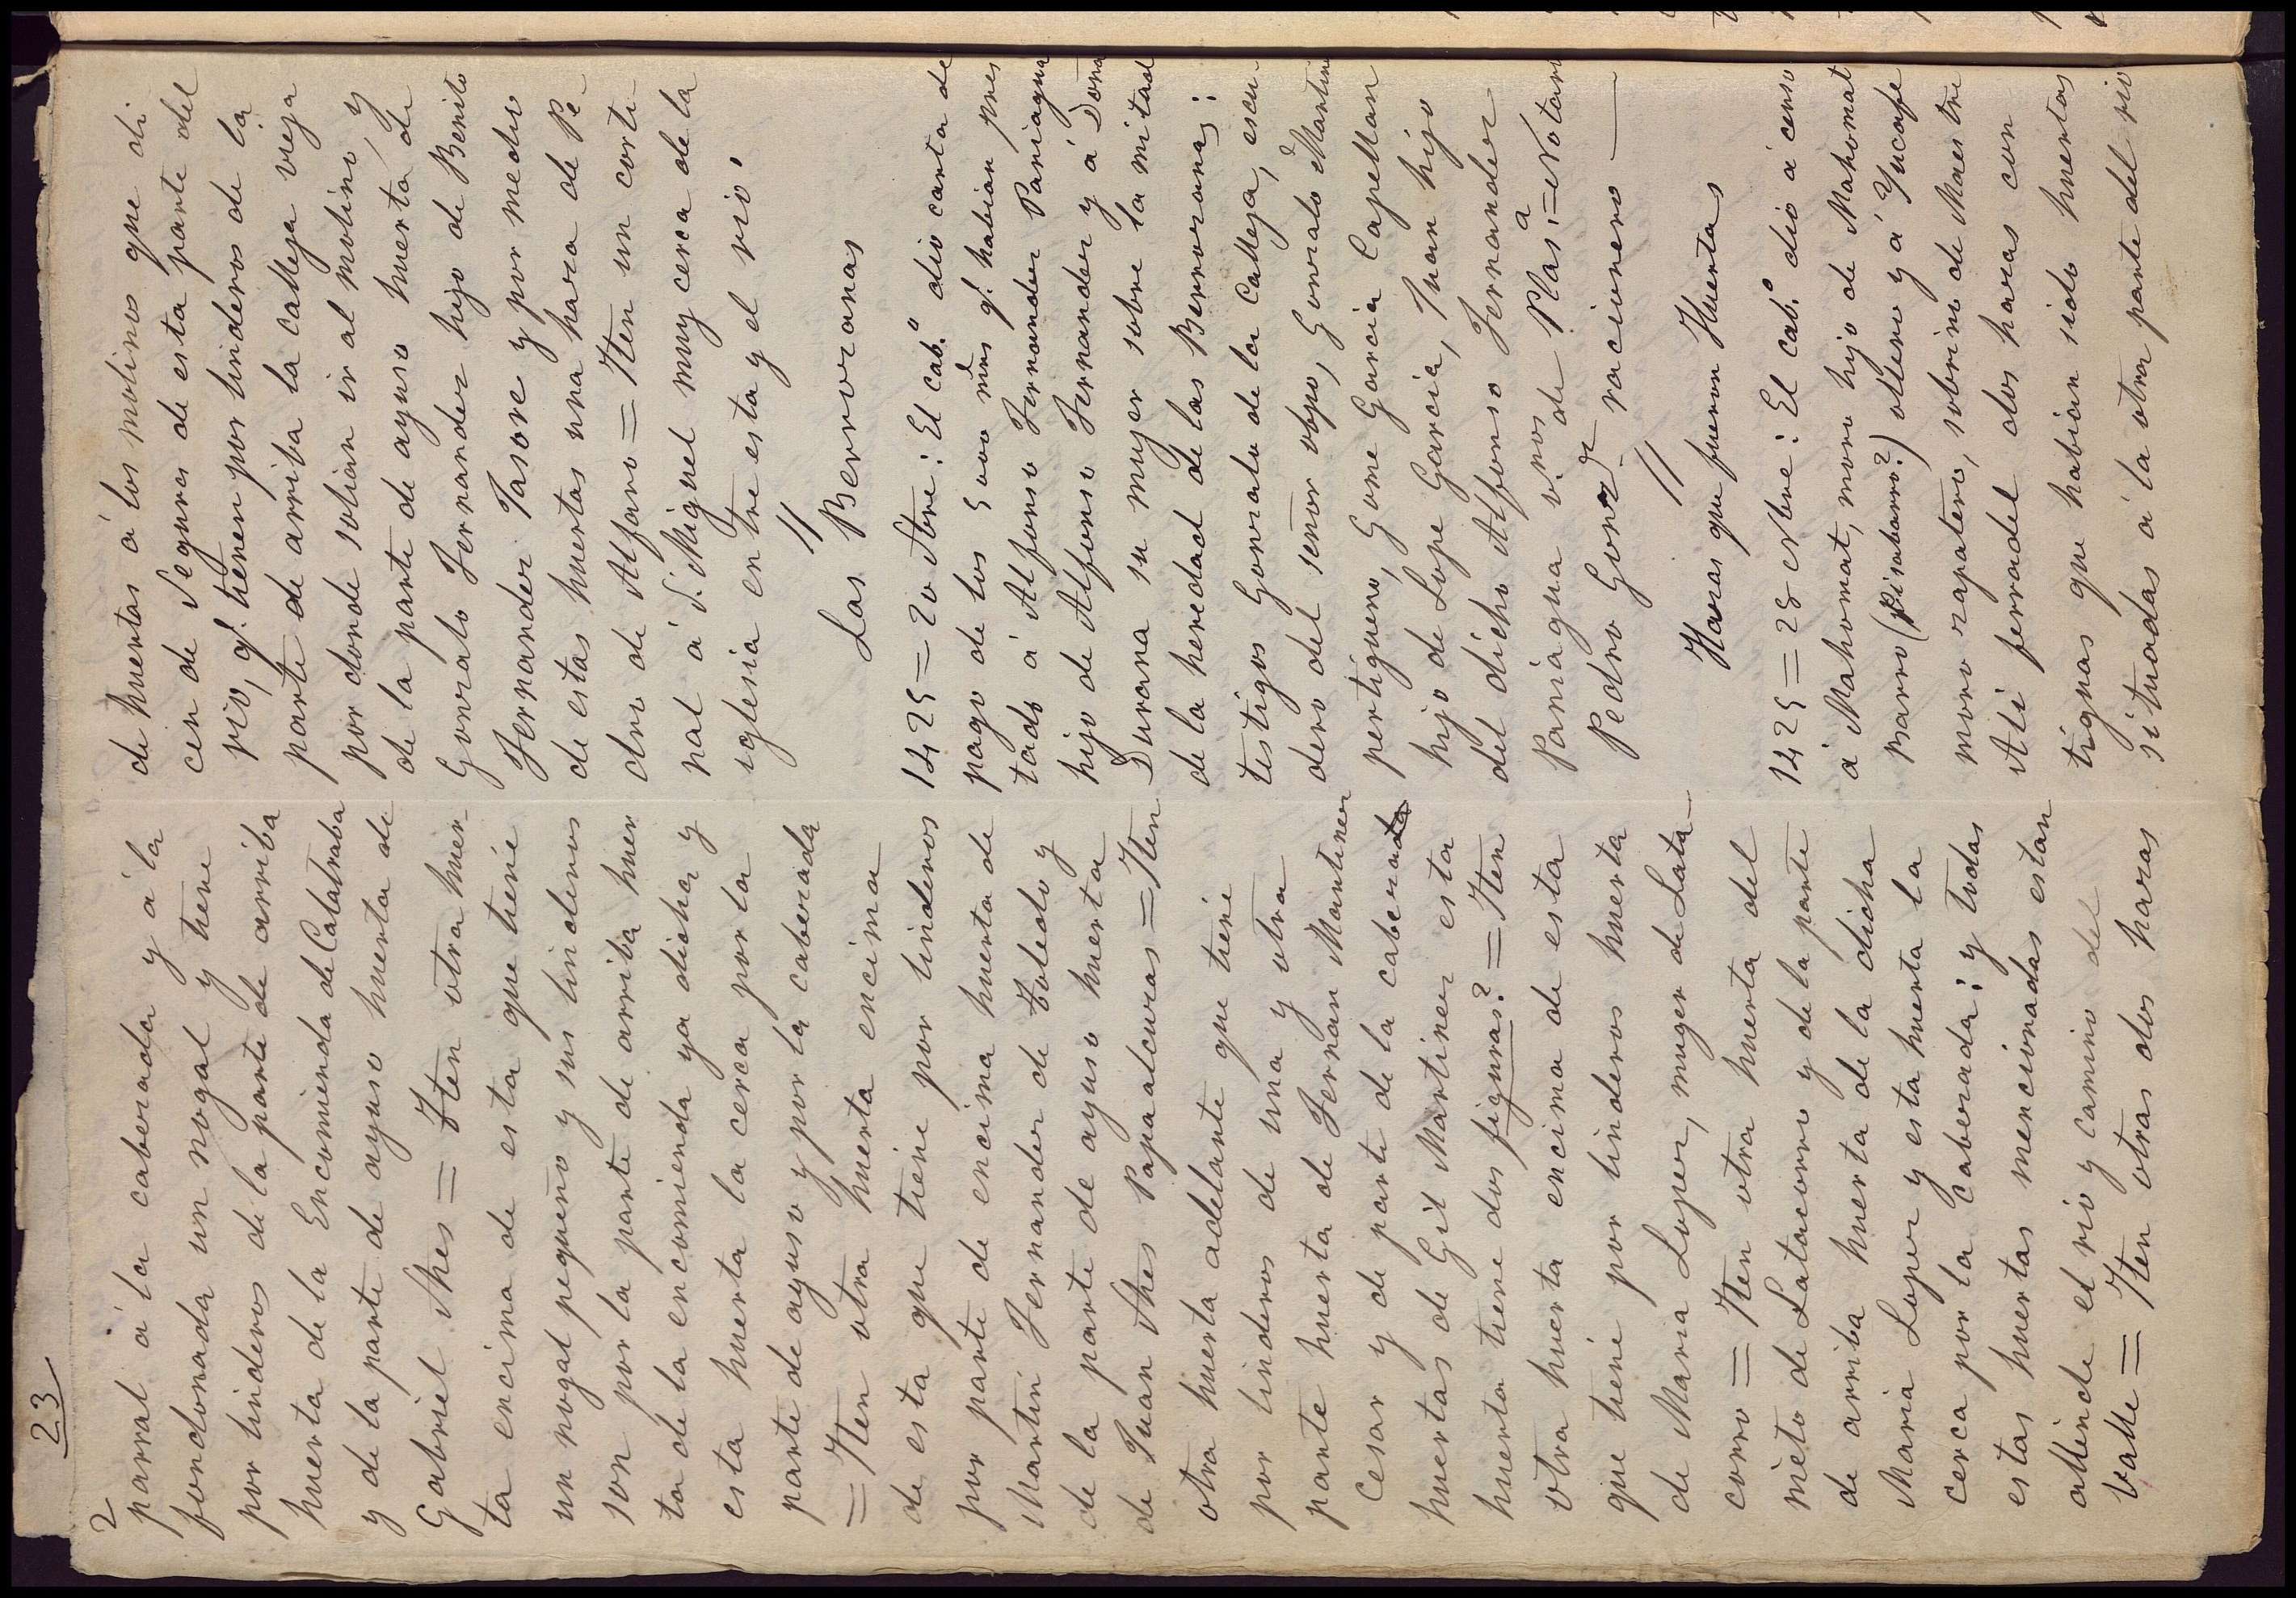 23
2
parral á la cabezada y á la
fondonada un nogal y tiene
por linderos de la parte de arriba
huerta de la Encomienda de Calatraba
y de la parte de ayuso huerta de
Gabriel Shes = Iten otra huer-
ta encima de esta que tiene
un nogal pequeño y sus linderos
son por la parte de arriba huer
ta de la encomienda ya dicha, y
esta huerta la cerca por la
parte de ayuso y por la cabezada
= Iten otra huerta encima
de esta que tiene por linderos
por parte de encima huerta de
Martin Fernandez de Toledo y
de la parte de ayuso huerta
de Juan Shes Papaalcuzas = Iten
otra huerta adelante que tiene
por linderos de una y otra
parte huerta de Fernan Martinez
Cesar y de parte de la cabezada
huertas de Gil Martinez esta
huerta tiene dos figuras? = Iten
otra huerta encima de esta
que tiene por linderos huerta
de Maria Lopez, muger de Lata-
corro = Iten otra huerta del
nieto de Latacorro y de la parte
de arriba huerta de la dicha
Maria Lopez y esta huerta la
cerca por la Cabezada: y todas
estas huertas mencionadas estan
allende el rio y camino del
Valle = Iten otras dos hazas
de huertas á los molinos que di-
cen de Segura de esta parte del
rio, q.e tienen por linderos de la
parte de arriba la calleja vieja
por donde solian ir al molino, y
de la parte de ayuso huerta de
Gonzalo Fernandez hijo de Benito
Fernandez Tasore y por medio
de estas huertas una haza de Pe-
dro de Alfaro = Iten un corti-
nal á S. Miguel muy cerca de la
iglesia entre esta y el rio.
//
Las Berrozanas
1425 = 20 Stbre: El cab.o dio carta de
pago de los 5000 mrs q.e habian pres
tado á Alfonso Fernandez Paniagua
hijo de Alfonso Fernandez y á Doña
Durana su mujer sobre la mitad
de la heredad de las Berrozanas:
testigos Gonzalo de la Calleja, escu-
dero del señor obpo, Gonzalo Martin
pertiguero, Gome Garcia Capellan
hijo de Lope Garcia, Juan hijo
del dicho Alfonso Fernandez
Paniagua v.nos de Plas.a = Notario
Pedro Gonz.z racionero
//
Hazas que fueron Huertas
1425 = 25 Nbre: El cab.o dio á censo
á Mahomat, moro hijo de Mahomat
Barro (Pisabarro?) ollero y á Yucafe
moro zapatero, sobrino de Maestre
Ali ferrador, dos hazas con-
tiguas que habian sido huertas
situadas á la otra parte del rio